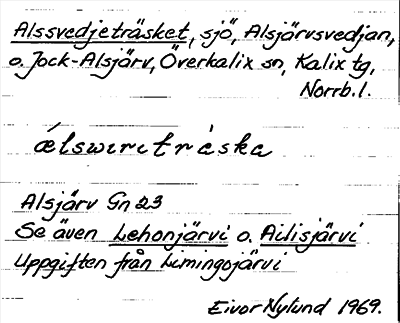 Alssvedjeträsket, sjö, Alsjärvsvedjan,
o. Jock-Alsjärv, Överkalix sn, Kalix tg,
Norrb. l.
Alsjärv Gn 23
Se även Lehonjärvi o. Ailisjärvi
Uppgiften från Limingojärvi
Eivor Nylund 1969.